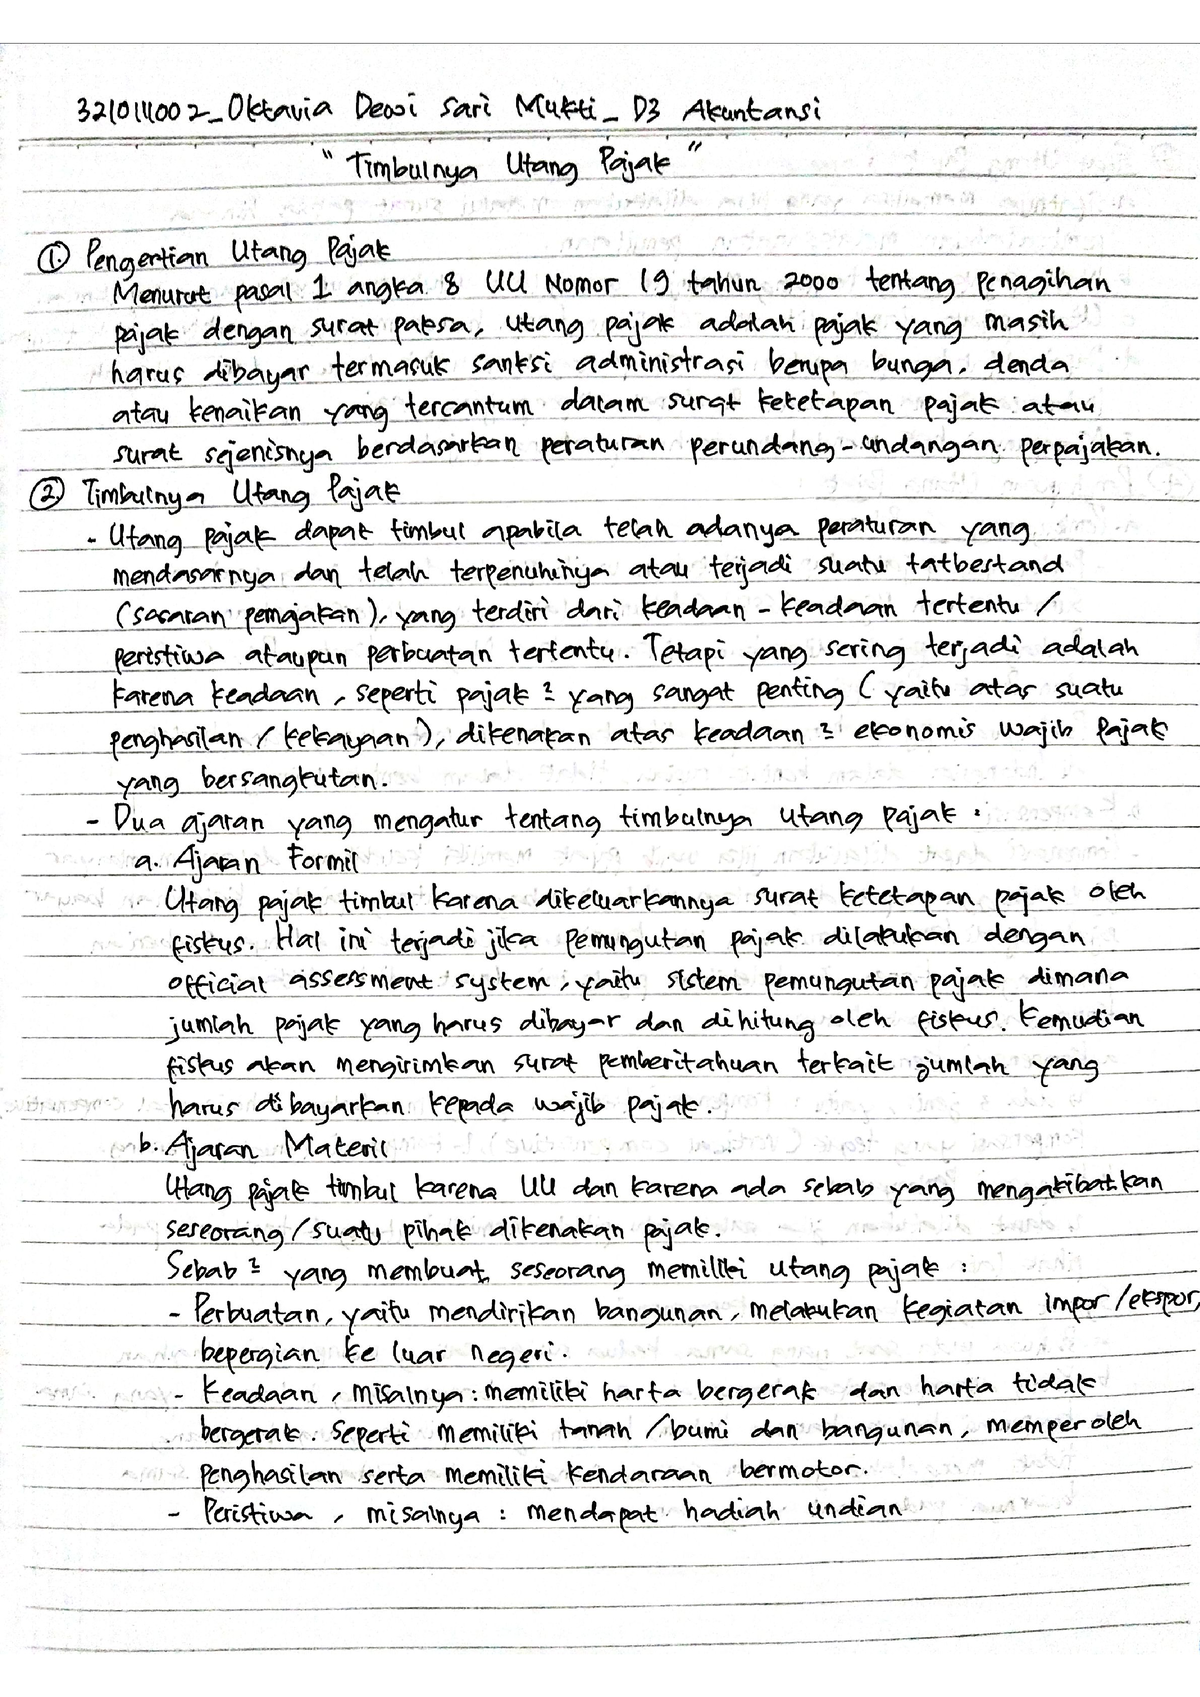 321011002_Oktavia Dewi Sari Mukti_ D3 Akuntansi
" Timbulnya Utang Pajak "
1. Pengertian Utang Pajak
Menurut pasal 1 angka 8 UU Nomor 19 tahun 2000 tentang Penagihan
pajak dengan surat paksa, utang pajak adalah pajak yang masih
harus dibayar termasuk sanksi administrasi berupa bunga, denda
atau kenaikan yang tercantum dalam surat ketetapan pajak atau
surat sejenisnya berdasarkan peraturan perundang-undangan perpajakan.
2. Timbulnya Utang Pajak
- Utang pajak dapat timbul apabila telah adanya peraturan yang
mendasarnya dan telah terpenuhinya atau terjadi suatu tatbestand
(sasaran pemajakan), yang terdiri dari keadaan - keadaan tertentu /
peristiwa ataupun perbuatan tertentu. Tetapi yang sering terjadi adalah
karena keadaan, seperti pajak ² yang sangat penting ( yaitu atas suatu
penghasilan / kekayaan ), dikenakan atas keadaan ² ekonomis wajib pajak
yang bersangkutan.
- Dua ajaran yang mengatur tentang timbulnya utang pajak :
a. Ajaran Formil
Utang pajak timbul karena dikeluarkannya surat ketetapan pajak oleh
fiskus. Hal ini terjadi jika pemungutan pajak dilakukan dengan
official assessment system, yaitu sistem pemungutan pajak dimana
jumlah pajak yang harus dibayar dan dihitung oleh fiskus. Kemudian
fiskus akan mengirimkan surat pemberitahuan terkait jumlah yang
harus dibayarkan kepada wajib pajak.
b. Ajaran Materil
Utang pajak timbul karena UU dan karena ada sebab yang mengakibatkan
seseorang / suatu pihak dikenakan pajak.
Sebab ² yang membuat seseorang memiliki utang pajak :
- Perbuatan, yaitu mendirikan bangunan, melakukan kegiatan impor /ekspor,
bepergian ke luar negeri.
- Keadaan, misalnya : memiliki harta bergerak dan harta tidak
bergerak. Seperti memiliki tanah / bumi dan bangunan, memperoleh
penghasilan serta memiliki kendaraan bermotor.
- Peristiwa, misalnya : mendapat hadiah undian